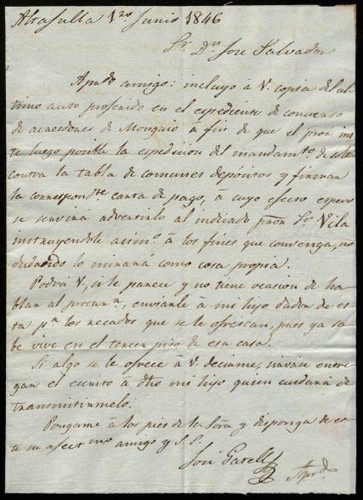 Atrasulla 1ro Junio 1846
Sr. Dn. José Salvador
Apdo. amigo: incluyo á V. copia del ul-
timo auto proferido en el expediente de convenso
de acreedores de Monguió á fin de que el pron
te luego posible la expedicion del mandamto. de
contra la tabla de comunes depositos y firman
la correspondte. carta de pago, á cuyo efecto espero
se servirá advertirlo al indicado pron. Sr. Vila
instruyendole asimo. á los fines que convenga, no
dudando lo mirará como cosa propia.
Podrá V, si le parece y no tiene ocasion de ha-
blar al procurr., enviarle á mi hijo dador de es-
ta pa. los recados que se ofrescan, pues ya sa-
be vive en el tercer piso de esa casa.
Si algo se le ofrece á V. decirme, sirvase entre-
gar el escrito á dho mi hijo quien cuidará de
transmitirmelo.
Pongame á los pies de la Sora. y disponga de es-
te su afectmo. amigo y S. S.
José Garell